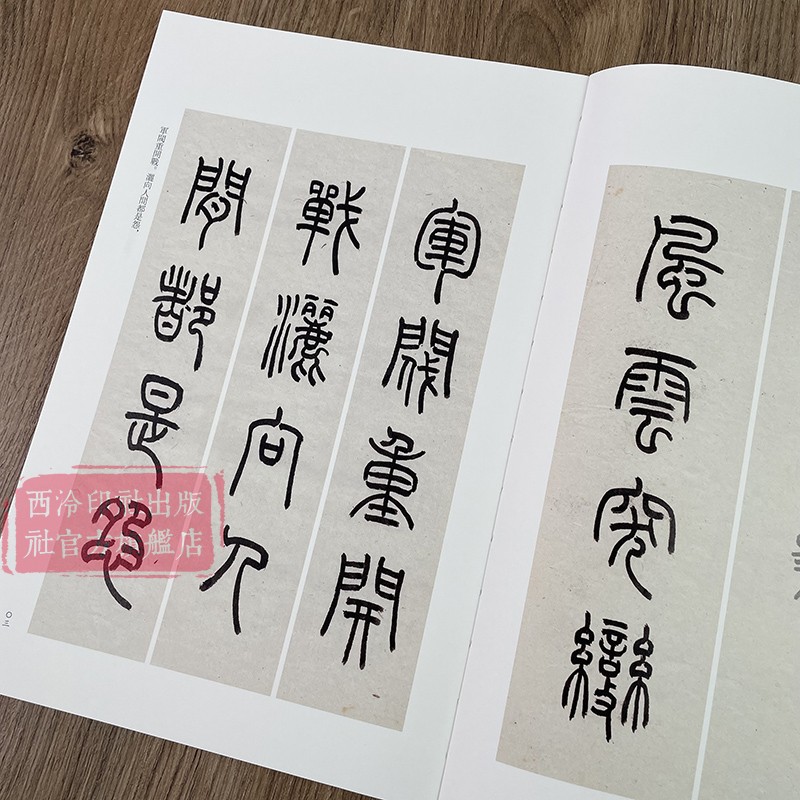 風雲突變
軍閥重開
戰灑向人
間都是怨
軍閥重開戰。灑向人間都是怨，
〇三
西泠印社出版
社官艦店